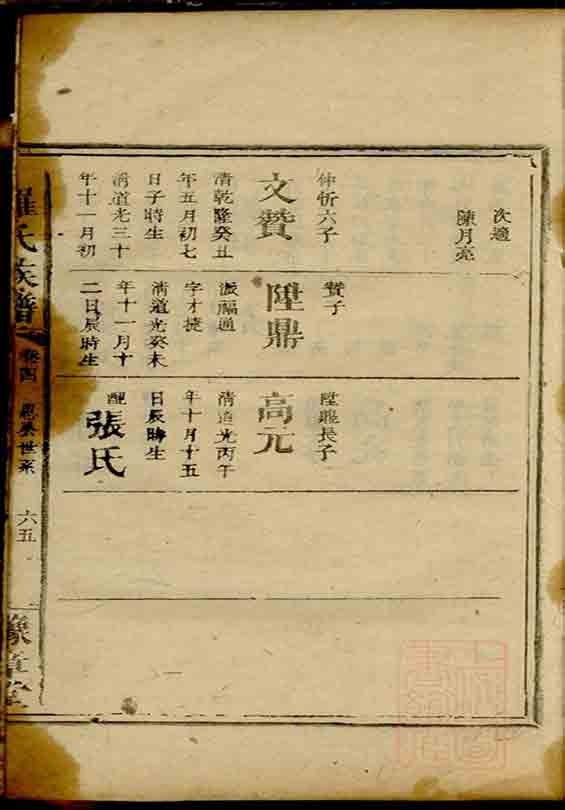 次適
陳月亮
仲忻六子
文贊
清乾隆癸丑
年五月初七
日子時生
清道光三十
年十一月初
贊子
陞鼎
派福通
字才捷
清道光癸未
年十一月十
二日辰時生
陞鼎長子
高元
清道光丙午
年十月十五
日辰時生
配
張氏
羅氏族譜
卷四
世系
六五
豫章堂